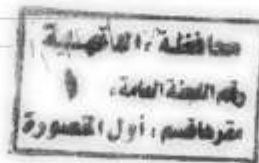 محافظة : الدقهلية
رقم اللجنة العامة :
مقرها قسم : أول المنصورة